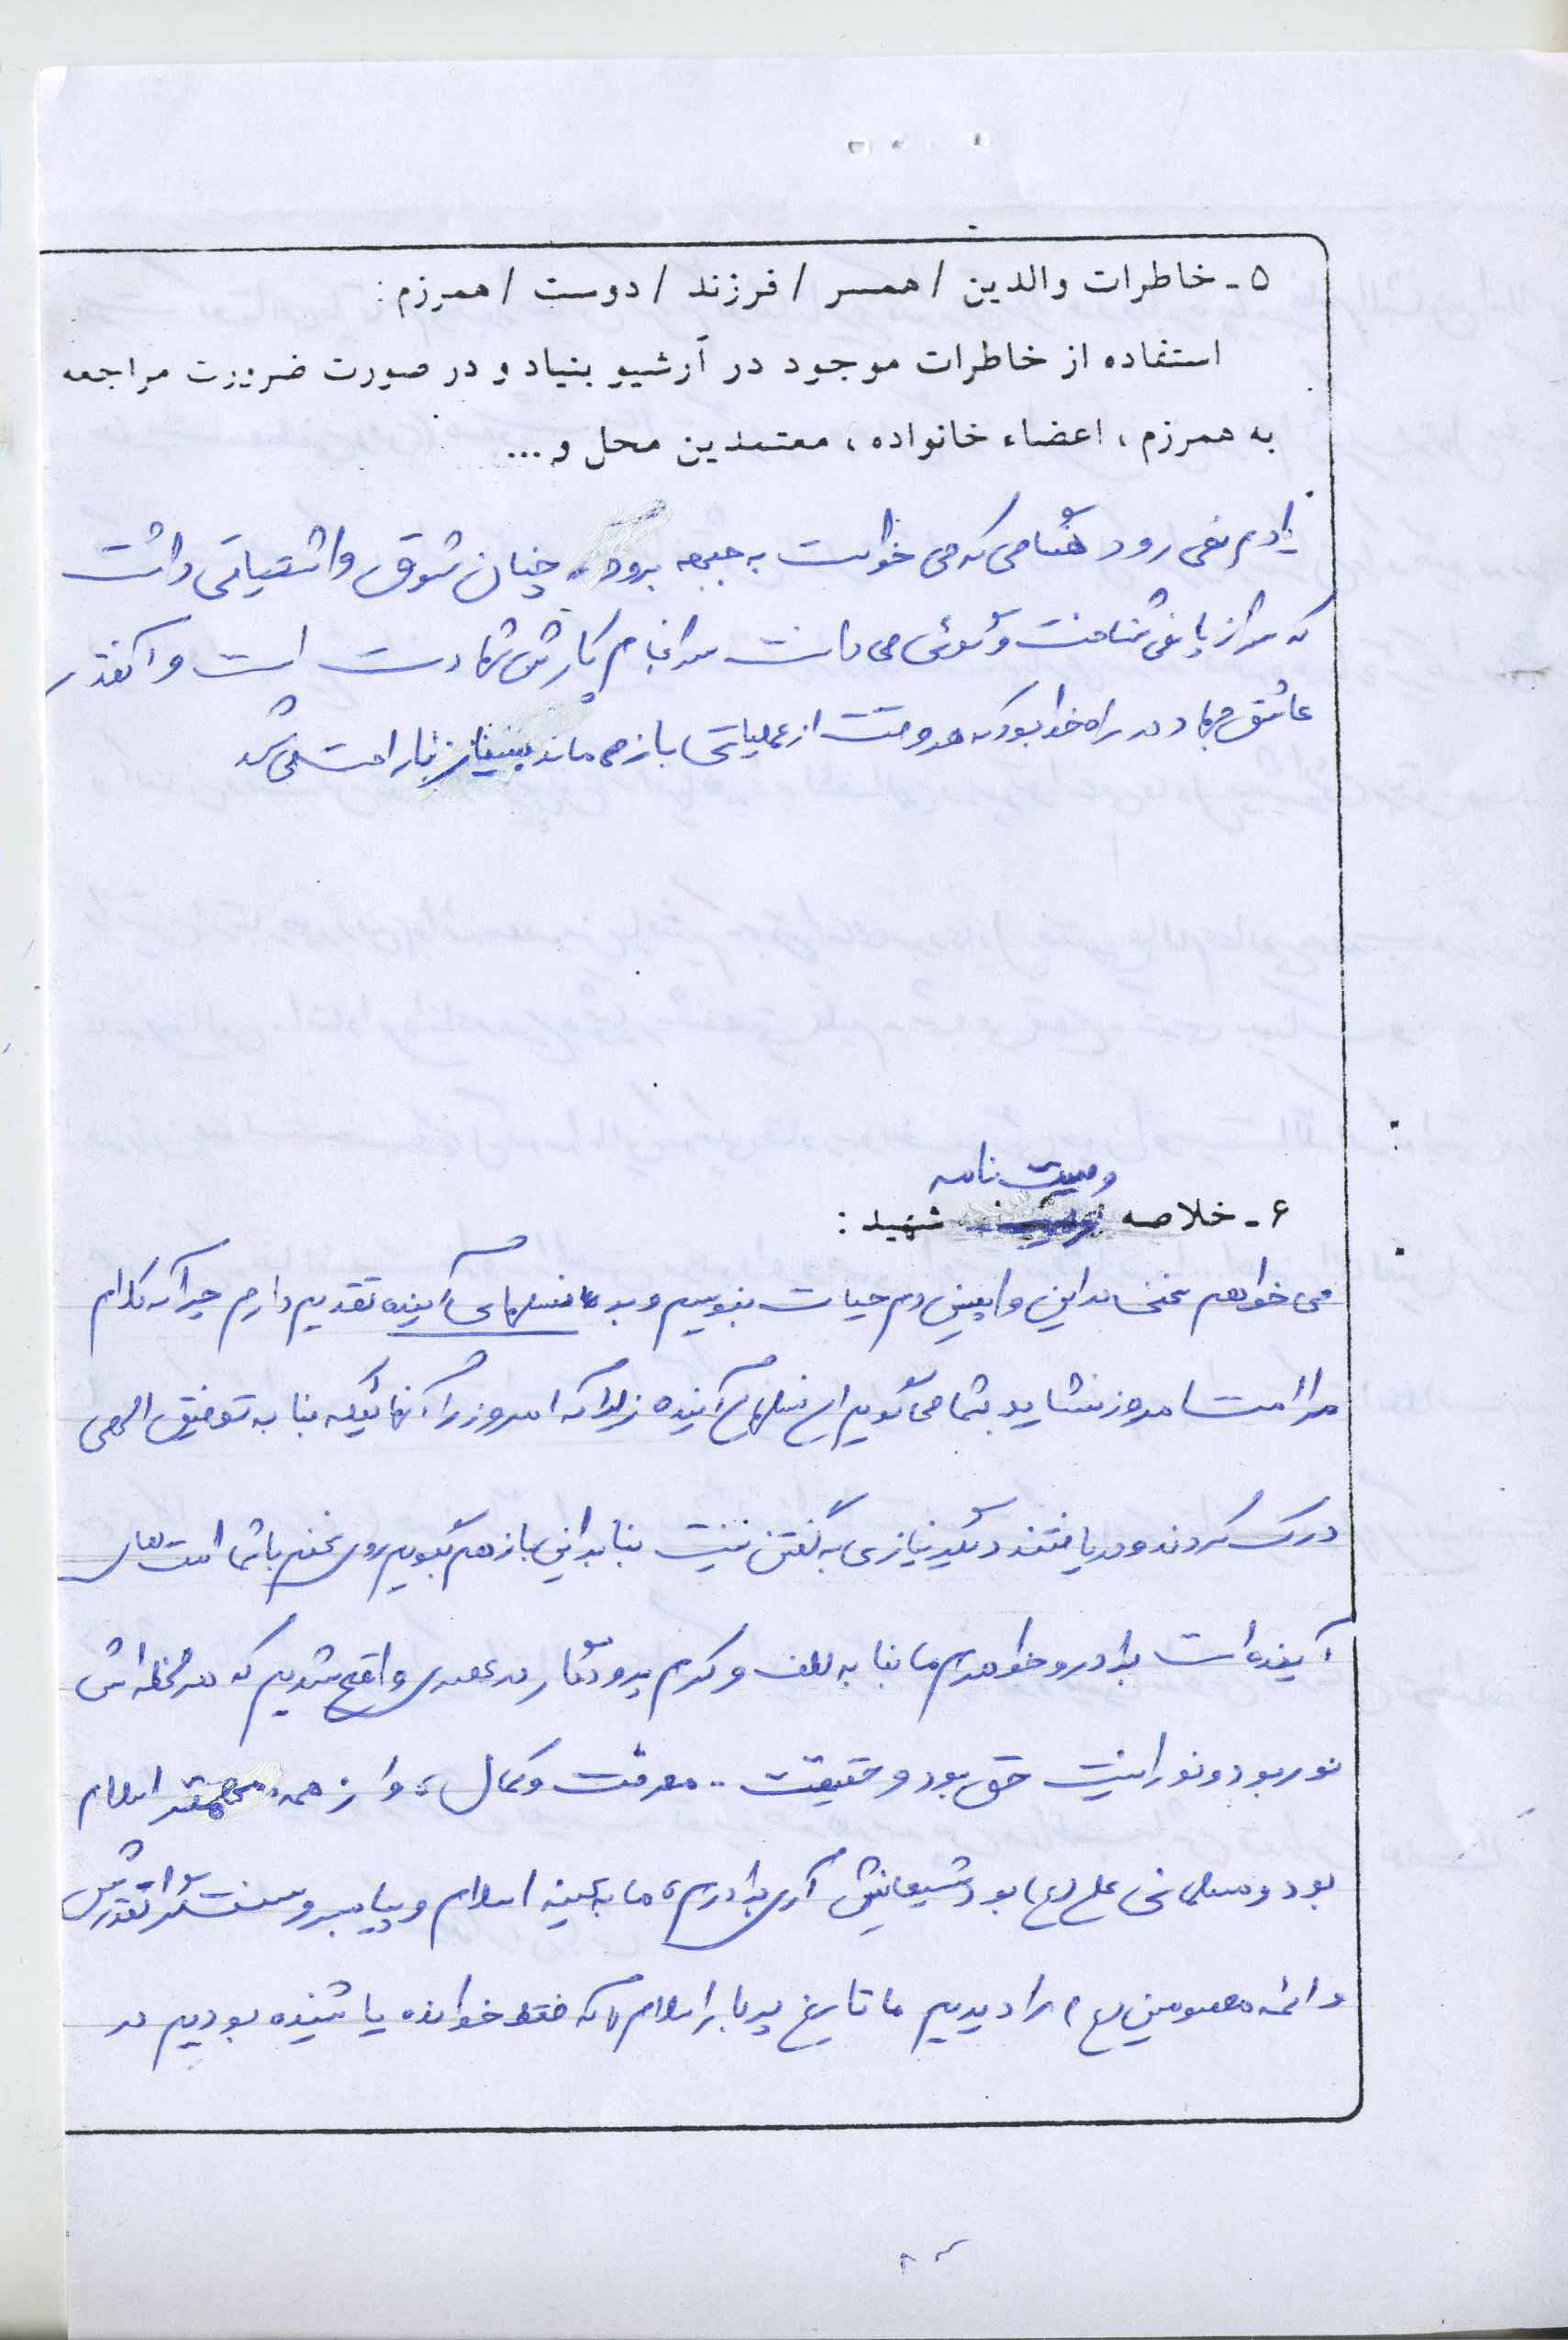 ۵ - خاطرات والدین / همسر / فرزند / دوست / همرزم :
استفاده از خاطرات موجود در آرشیو بنیاد و در صورت ضرورت مراجعه
به همرزم ، اعضاء خانواده ، معتمدین محل و ...
یادم نمی رود هنگامی که می خواست به جبهه برود چنان شوق و اشتیاقی داشت
که سر از پا نمی شناخت و گوئی می دانست سرانجام کارش شهادت است و آنقدر
عاشق جهاد در راه خدا بود که هر وقت از عملیاتی باز می ماند بسیار ناراحت می شد
وصیت نامه
۶ - خلاصه شهید :
می خواهم سخنی در این واپسین دم حیات بنویسم و به نسلهای آینده تقدیم دارم چرا که کلام
مرا امت امروز نشاید بشما می گویم ای نسلهای آینده زیرا که امروز را آنهائیکه بنا به توفیق الهی
درک کردند و دریافتند دیگر نیازی به گفتن نیست بنابراین باز هم بگویم روی سخنم با شما امت های
آینده است برادر و خواهرم ما بنا به لطف و کرم پروردگار در عصری واقع شدیم که هر لحظه اش
نور بود و نورانیت حق بود و حقیقت .. معرفت و کمال ، و از همه مهمتر اسلام
بود و مسلمانی علی (ع) بود و شیعیانش آری برادرم ، ما بعینه اسلام و پیامبر و سنت گرانقدرش
و ائمه معصومین (ع) را دیدیم ما تاریخ پربار اسلام را که فقط خوانده یا شنیده بودیم در